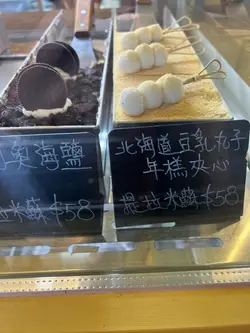 奧海鹽
提拉米蘇 $58
北海道豆乳丸子
年糕夾心
提拉米蘇 $58